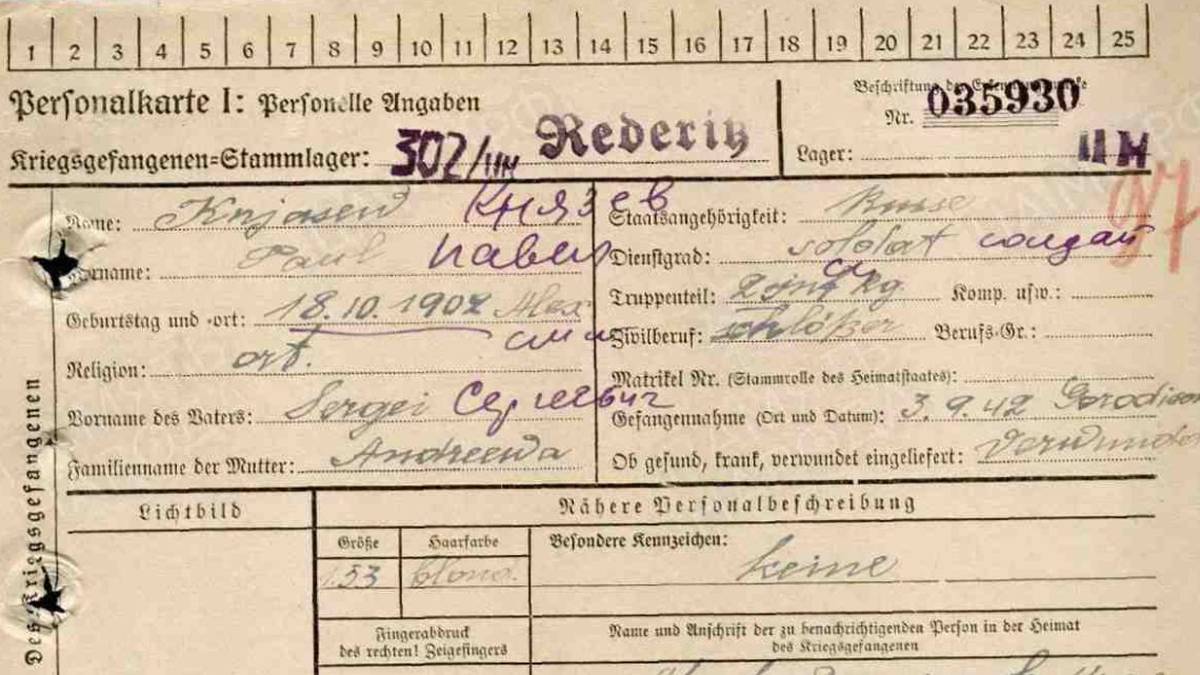 1 2 3 4 5 6 7 8 9 10 11 12 13 14 15 16 17 18 19 20 21 22 23 24 25
Personalkarte I: Personelle Angaben
Kriegsgefangenen=Stammlager: 302/IIH Rederitz
Beschriftung der
Nr. 035930
Lager: II H
97
Name: Knjasew Князев
Vorname: Paul Павел
Geburtstag und -ort: 18.10.1902
Religion: ort.
Vorname des Vaters: Sergei Сергеевич
Familienname der Mutter: Andreewa
Staatsangehörigkeit: Russe
Dienstgrad: soldat солдат
Truppenteil: Komp. usw.:
Zivilberuf: schlößer Berufs-Gr.:
Matrikel Nr. (Stammrolle des Heimatstaates):
Gefangennahme (Ort und Datum): 3.9.42
Ob gesund, krank, verwundet eingeliefert:
Des Kriegsgefangenen
Lichtbild
Nähere Personalbeschreibung
Größe Haarfarbe Besondere Kennzeichen:
1.53 blond. keine
Fingerabdruck
des rechten! Zeigefingers
Name und Anschrift der zu benachrichtigenden Person in der Heimat
des Kriegsgefangenen